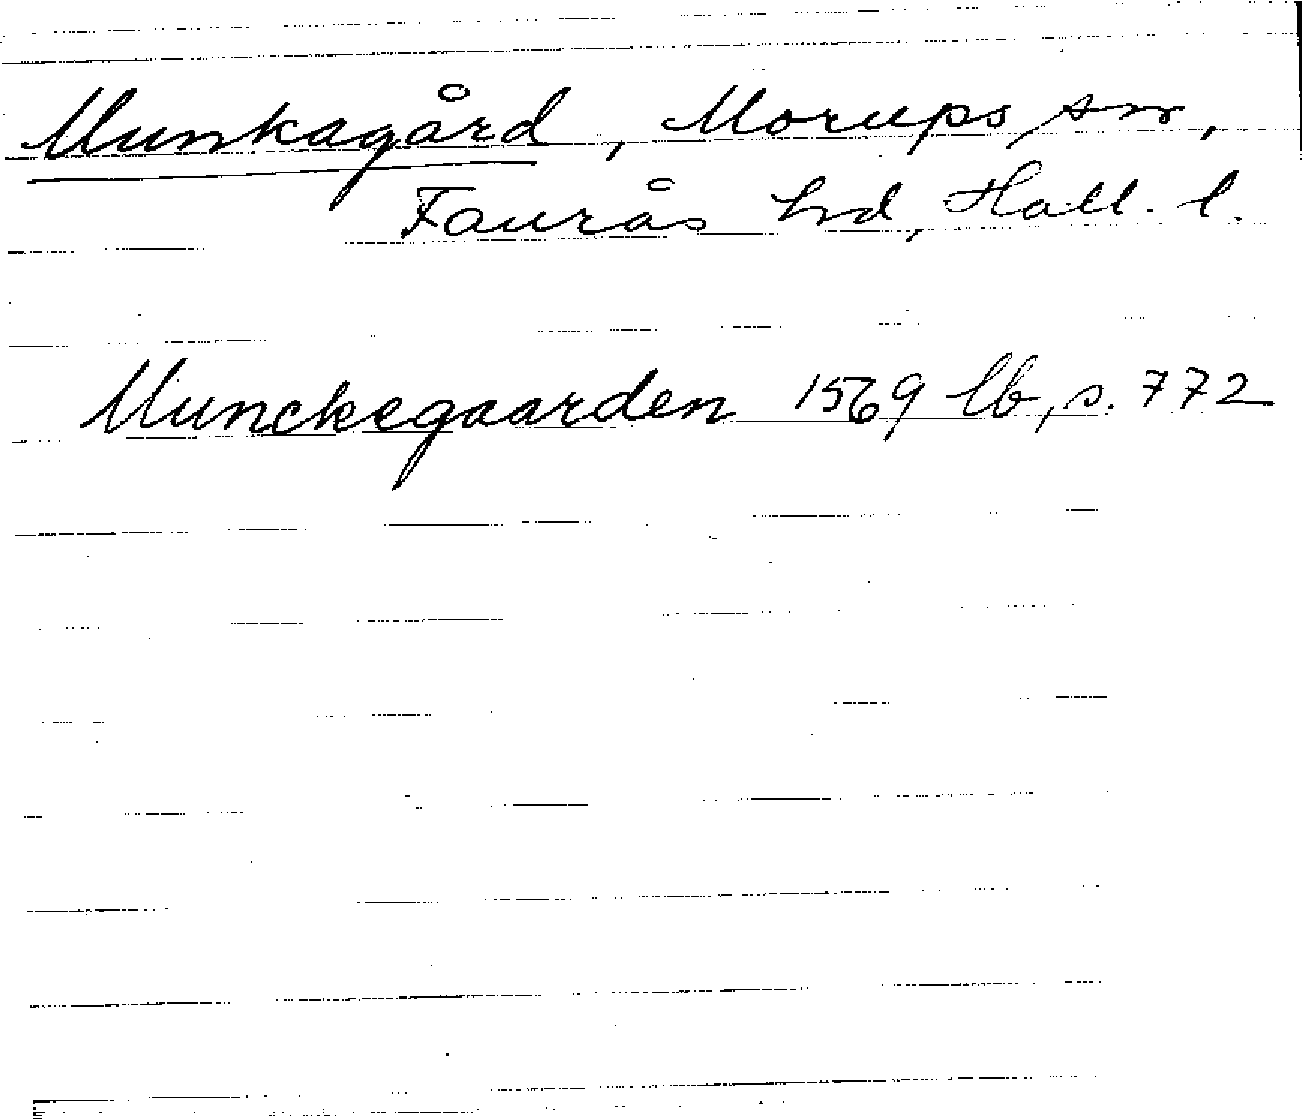 Munkagård, Morups sn,
Faurås hd, Hall. l.
Munckegaarden 1569 lb, s. 772